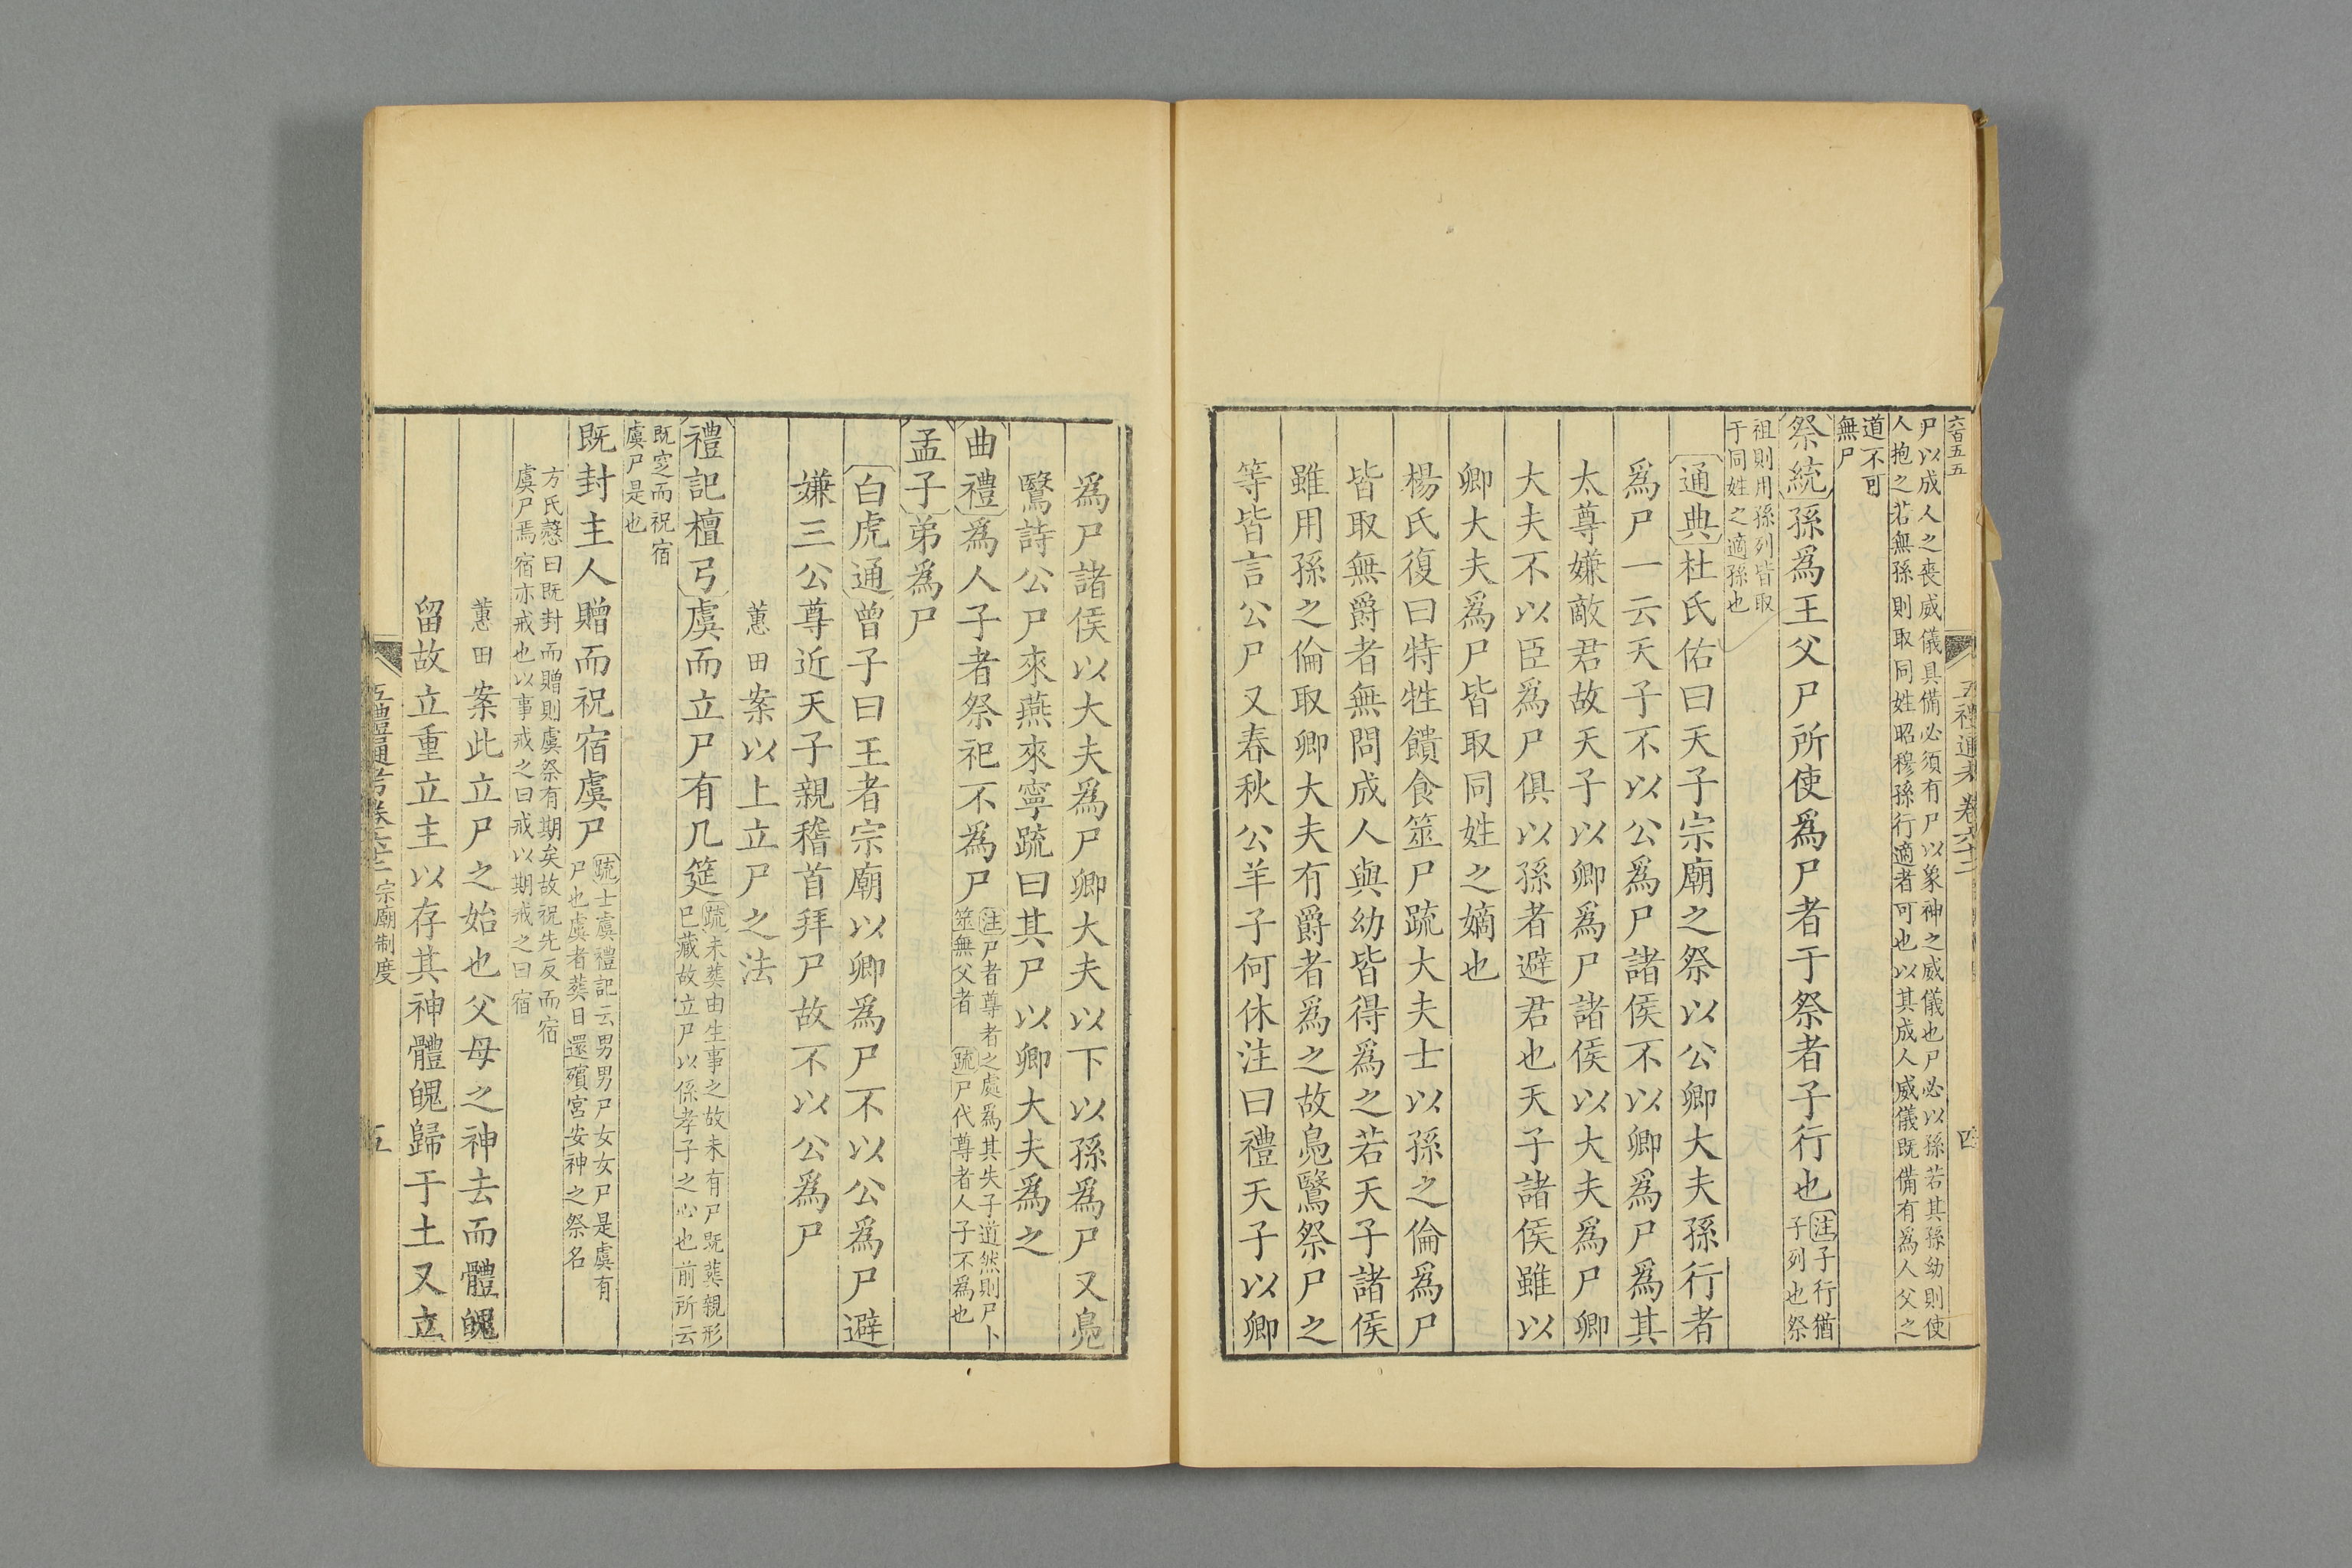 六百五五
五禮通考卷六十二
四
尸以成人之喪威儀具備必須有尸以象神之威儀也尸必以孫若其孫幼則使
人抱之若無孫則取同姓昭穆孫行適者可也以其成人威儀既備有為人父之
道不可
無尸
祭統孫爲王父尸所使爲尸者于祭者子行也注子行猶
子列也祭
祖則用孫列皆取
于同姓之適孫也
通典杜氏佑曰天子宗廟之祭以公卿大夫孫行者
爲尸一云天子不以公爲尸諸侯不以卿爲尸爲其
太尊嫌敵君故天子以卿爲尸諸侯以大夫爲尸卿
大夫不以臣爲尸俱以孫者避君也天子諸侯雖以
卿大夫爲尸皆取同姓之嫡也
楊氏復曰特牲饋食筮尸疏大夫士以孫之倫爲尸
皆取無爵者無問成人與幼皆得爲之若天子諸侯
雖用孫之倫取卿大夫有爵者爲之故鳧鷖祭尸之
等皆言公尸又春秋公羊子何休注曰禮天子以卿
爲尸諸侯以大夫爲尸卿大夫以下以孫爲尸又鳧
鷖詩公尸來燕來寧疏曰其尸以卿大夫爲之
曲禮爲人子者祭祀不爲尸注尸者尊者之處爲其失子道然則尸卜
筮無父者 疏尸代尊者人子不爲也
孟子弟爲尸
白虎通曾子曰王者宗廟以卿爲尸不以公爲尸避
嫌三公尊近天子親稽首拜尸故不以公爲尸
蕙田案以上立尸之法
禮記檀弓虞而立尸有几筵疏未葬由生事之故未有尸既葬親形
已藏故立尸以係孝子之心也前所云
既窆而祝宿
虞尸是也
既封主人贈而祝宿虞尸疏士虞禮記云男男尸女女尸是虞有
尸也虞者葬日還殯宮安神之祭名
方氏慤曰既封而贈則虞祭有期矣故祝先反而宿
虞尸焉宿亦戒也以事戒之曰戒以期戒之曰宿
蕙田案此立尸之始也父母之神去而體魄
留故立重立主以存其神體魄歸于土又立
五禮通考卷六十二 宗廟制度
五